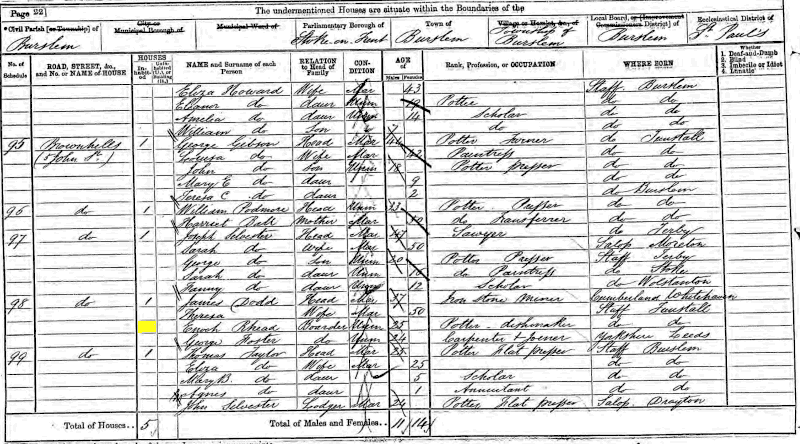 Page 22] The undermentioned Houses are situate within the Boundaries of the
Civil Parish [or Township] of Burslem
City or Municipal Borough of
Municipal Ward of
Parliamentary Borough of Stoke on Trent
Town of Burslem
Village or Hamlet, &c., of Township of Burslem
Local Board, or [Improvement Commissioners District] of Burslem
Ecclesiastical District of St. Paul's
No. of Schedule ROAD, STREET, &c., and No. or NAME of HOUSE HOUSES Inhabited NAME and Surname of each Person RELATION to Head of Family CONDITION AGE of Males Females Rank, Profession, or OCCUPATION WHERE BORN Whether 1. Deaf-and-Dumb 2. Blind 3. Imbecile or Idiot 4. Lunatic
Eliza Howard Wife Mar 43 Staff. Burslem
Eleanor do daur Unm 19 Potter do do
Amelia do daur Unm 14 Scholar do do
William do Son 7 do do do
95 Brownhills (5 John St.) 1 George Gibson Head Mar 44 Potter Turner do Tunstall
do Wife Mar 42 Paintress do do
John do Son Unm 18 Potter presser do do
Mary E do daur 9 do do
Teresa C do daur 2 do Burslem
96 do 1 William Podmore Head Unm 23 Potter Presser do do
Harriet Ball Mother Mar do Transferrer do do
97 do 1 Joseph Selvester Head Mar 47 Sawyer do
Sarah do Wife Mar 50 Salop Moreton
George do Son Unm 20 Potter Presser Staff
Sarah do daur Unm do Paintress do Stoke
Fanny do daur 12 Scholar do Wolstanton
98 do 1 James Dodd Head Mar 37 Iron Stone Miner Cumberland Whitehaven
Theresa Wife Mar 50 Staff Tunstall
Enoch Rhead Boarder Unm 25 Potter - dishmaker do do
George Foster do Unm 24 Carpenter & Joener Yorkshire Leeds
99 do 1 Thomas Taylor Head Mar 25 Potter Flat presser Staff Burslem
Eliza do Wife Mar 25 do do
Mary B. do daur 5 Scholar do do
Agnes do daur 1 Annuitant do do
John Selvester Lodger Mar 24 Potter Flat presser Salop Drayton
Total of Houses... 5 Total of Males and Females... 11 14